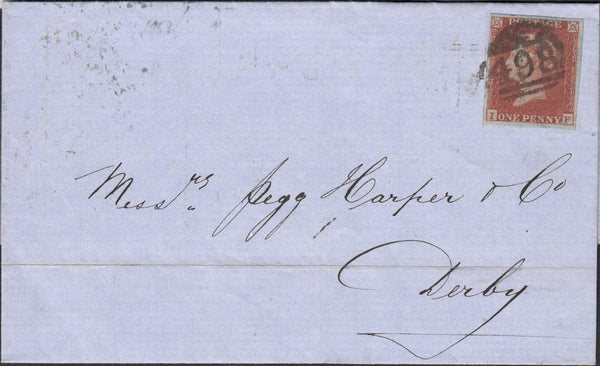 POSTAGE
498
I ONE PENNY F
Messrs. Pegg Harper & Co
Derby